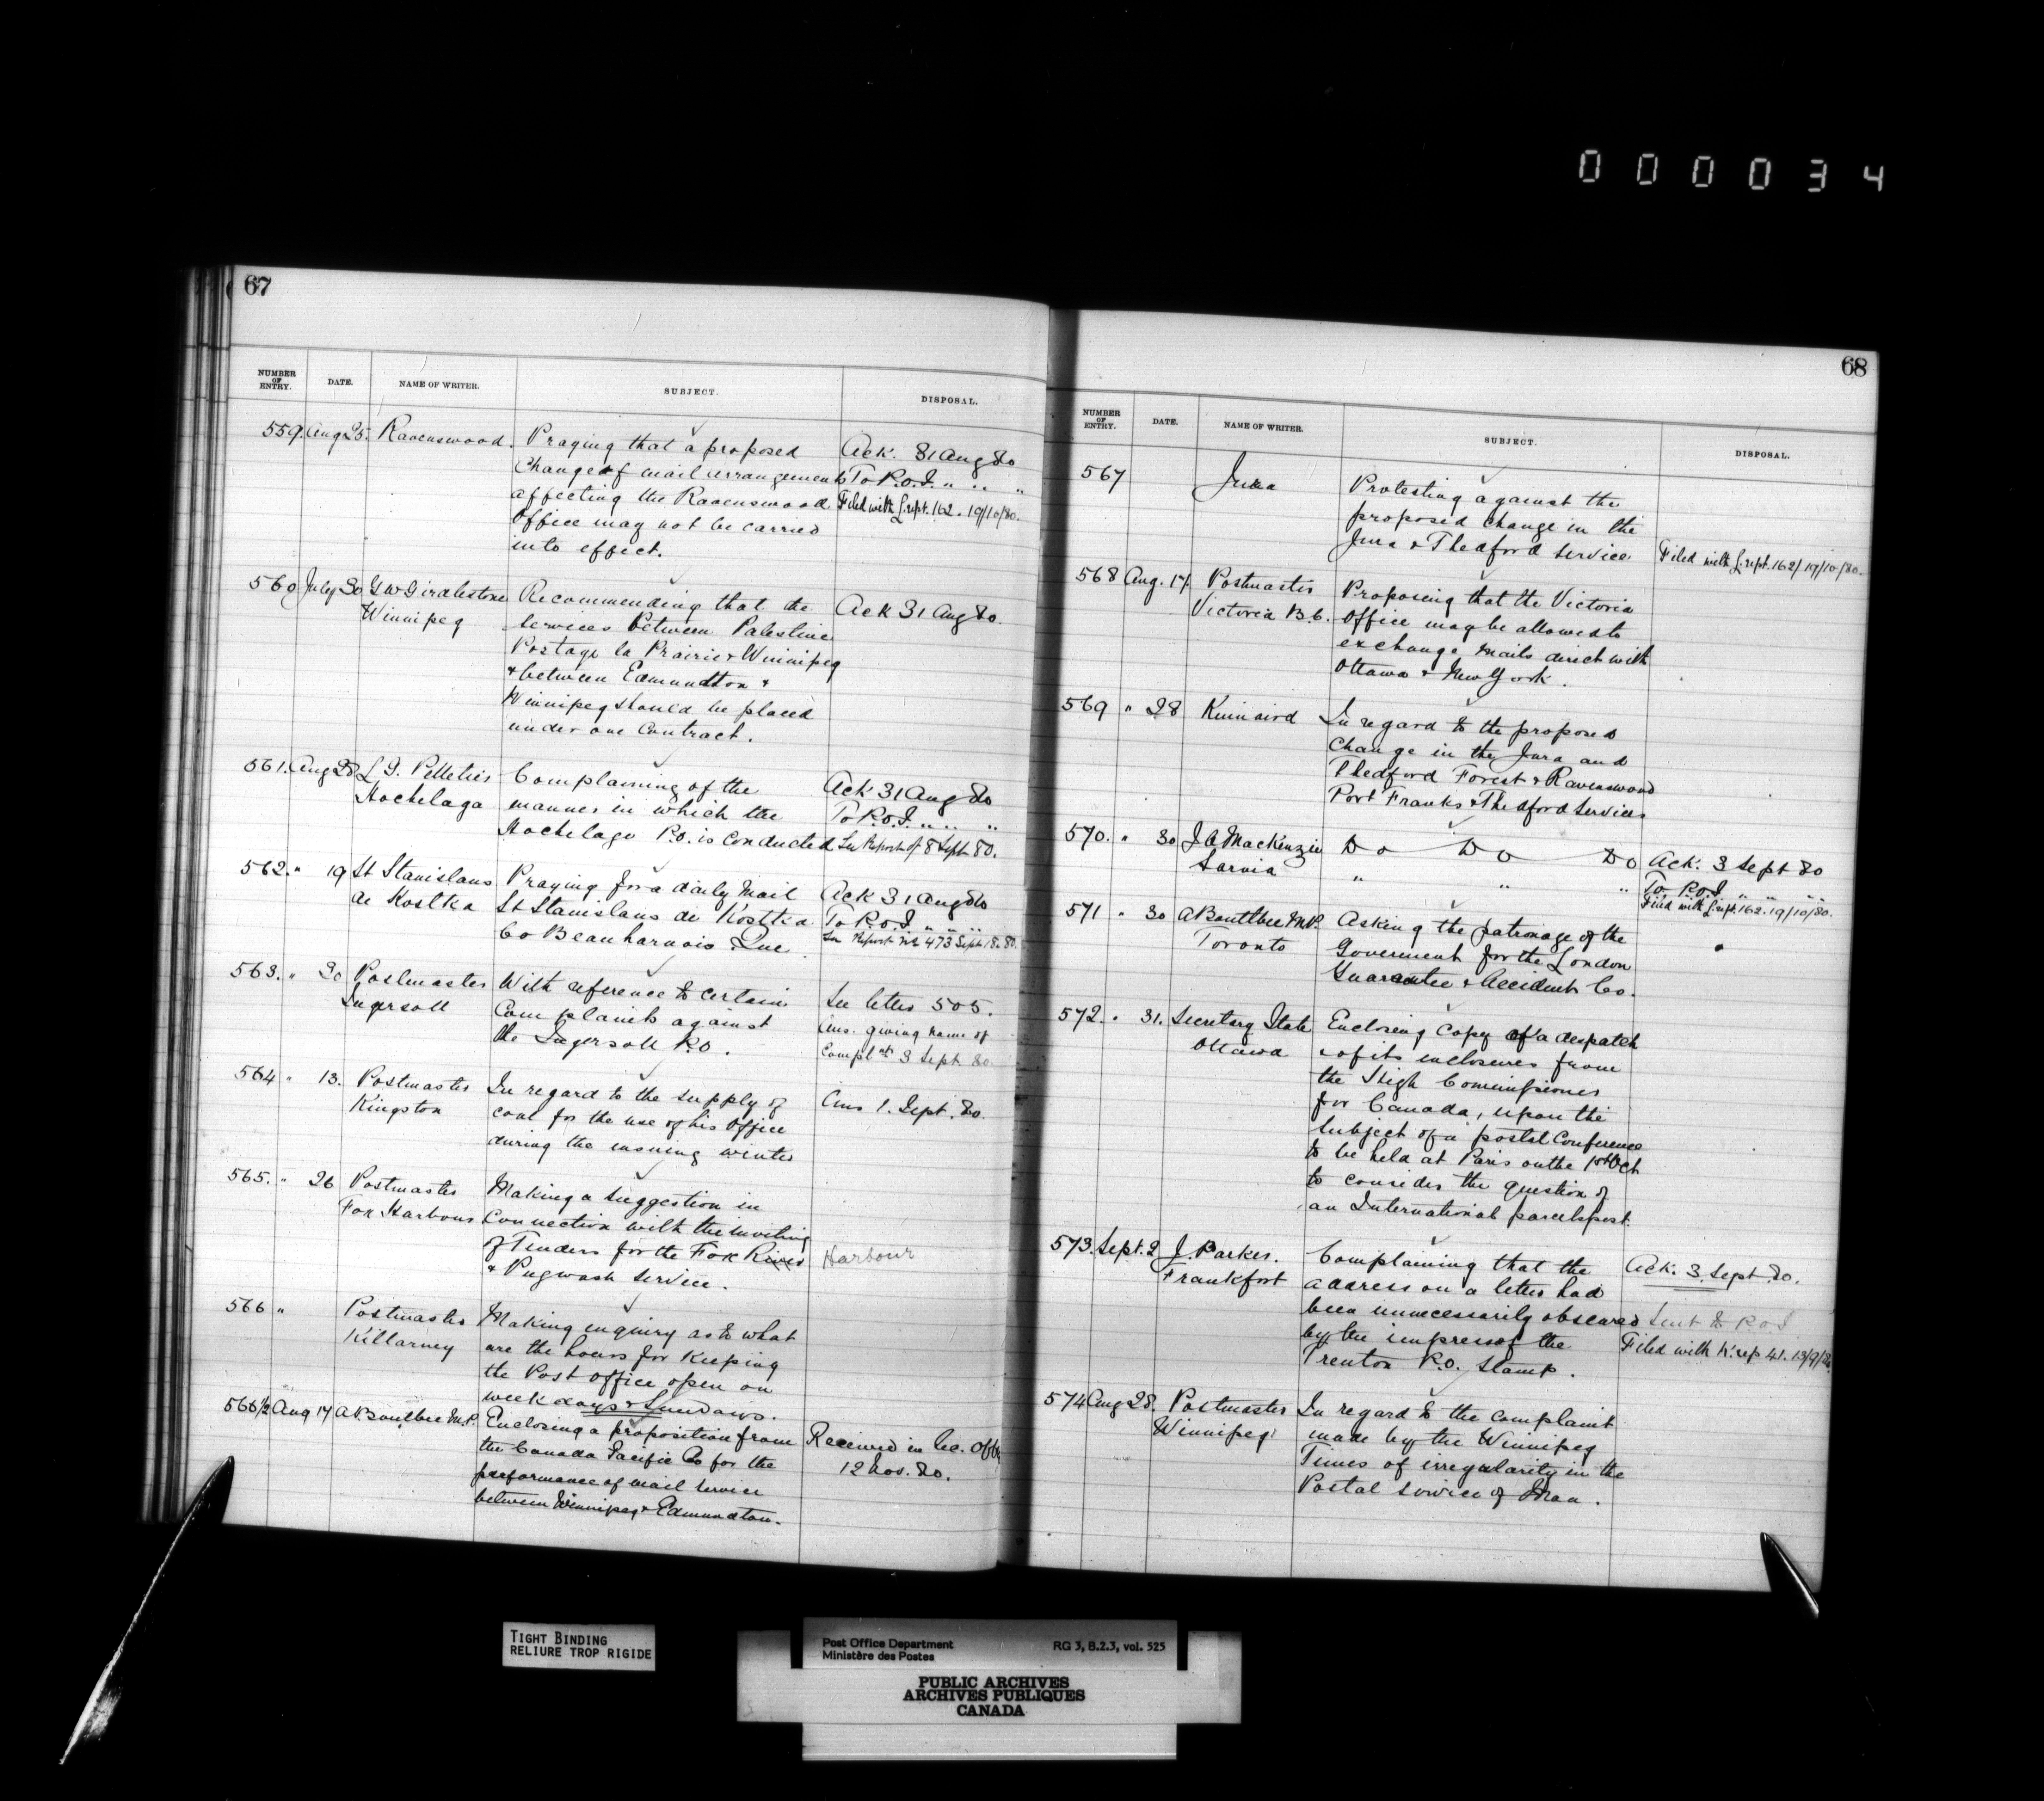 000034
67
NUMBER OF ENTRY. DATE. NAME OF WRITER. SUBJECT. DISPOSAL.
559. Aug 25. Ravenswood. Praying that a proposed Ack. 31 Aug 80
change of mail arrangements To P.O.I. " " "
affecting the Ravenswood Filed with L. rept. 162. 19/10/80.
Office may not be carried
into effect.
560 July 30 G W Girdlestone Recommending that the Ack 31 Aug 80.
Winnipeg services between Palestine
Portage la Prairie & Winnipeg
& between Edmundton &
Winnipeg should be placed
under one Contract.
561. Aug 28 L G. Pelletier Complaining of the Ack 31 Aug 80
Hochelaga manner in which the To P.O.I. " " "
Hochelaga P.O. is conducted See Report of 8 Sept 80.
562. " 19 St Stanislaus Praying for a daily Mail Ack 31 Aug 80
de Kostka St Stanislaus de Kostka To P.O.I. " " "
Co Beauharnois Que See Report No 473 Sept 18. 80.
563. " 30 Postmaster With reference to certain See letter 505.
Ingersoll Complaints against Ans. giving name of
the Ingersoll P.O. Complnt 3 Sept 80.
564 " 13. Postmaster In regard to the supply of Ans 1. Sept. 80.
Kingston coal for the use of his Office
during the ensuing winter
565. " 26 Postmaster Making a suggestion in
Fox Harbour Connection with the inviting
of Tenders for the Fox River Harbour
& Pugwash service.
566 " Postmaster Making enquiry as to what
Killarney are the hours for keeping
the Post Office open on
week days & Sundays.
566 1/2 Aug 17 A Boultbee M.P. Enclosing a proposition from Received in Sec. Office
the Canada Pacific Co for the 12 Nov. 80.
performance of mail service
between Winnipeg & Edmundton.
68
NUMBER OF ENTRY. DATE. NAME OF WRITER. SUBJECT. DISPOSAL.
567 Jura Protesting against the
proposed change in the
Jura & Thedford service Filed with L. rept. 162/ 19/10/80.
568 Aug. 17. Postmaster Proposing that the Victoria
Victoria B.C. Office may be allowed to
exchange mails direct with
Ottawa & New York.
569 " 28 Kinnaird In regard to the proposed
change in the Jura and
Thedford Forest & Ravenswood
Port Franks & Thedford services
570. " 30 J A MacKenzie Do Do Do Ack. 3 Sept 80
Sarnia " " " To P.O.I. " " "
Filed with L. rept. 162. 19/10/80.
571 " 30 A Boultbee M.P. Asking the patronage of the
Toronto Government for the London
Guarantee & Accident Co.
572. " 31. Secretary State Enclosing Copy of a despatch
Ottawa & of its enclosures from
the High Commissioner
for Canada, upon the
subject of a postal Conference
to be held at Paris on the 1st Oct
to consider the question of
an International parcels post.
573. Sept. 2 J. Parker. Complaining that the Ack. 3 Sept 80.
Frankfort address on a letter had
been unnecessarily obscured Sent to P.O.I
by the impress of the Filed with K. rep 41. 13/9/80
Trenton P.O. Stamp.
574 Aug 28. Postmaster In regard to the complaint
Winnipeg made by the Winnipeg
Times of irregularity in the
Postal service of Man.
TIGHT BINDING
RELIURE TROP RIGIDE
Post Office Department RG 3, B.2.3, vol. 525
Ministère des Postes
PUBLIC ARCHIVES
ARCHIVES PUBLIQUES
CANADA